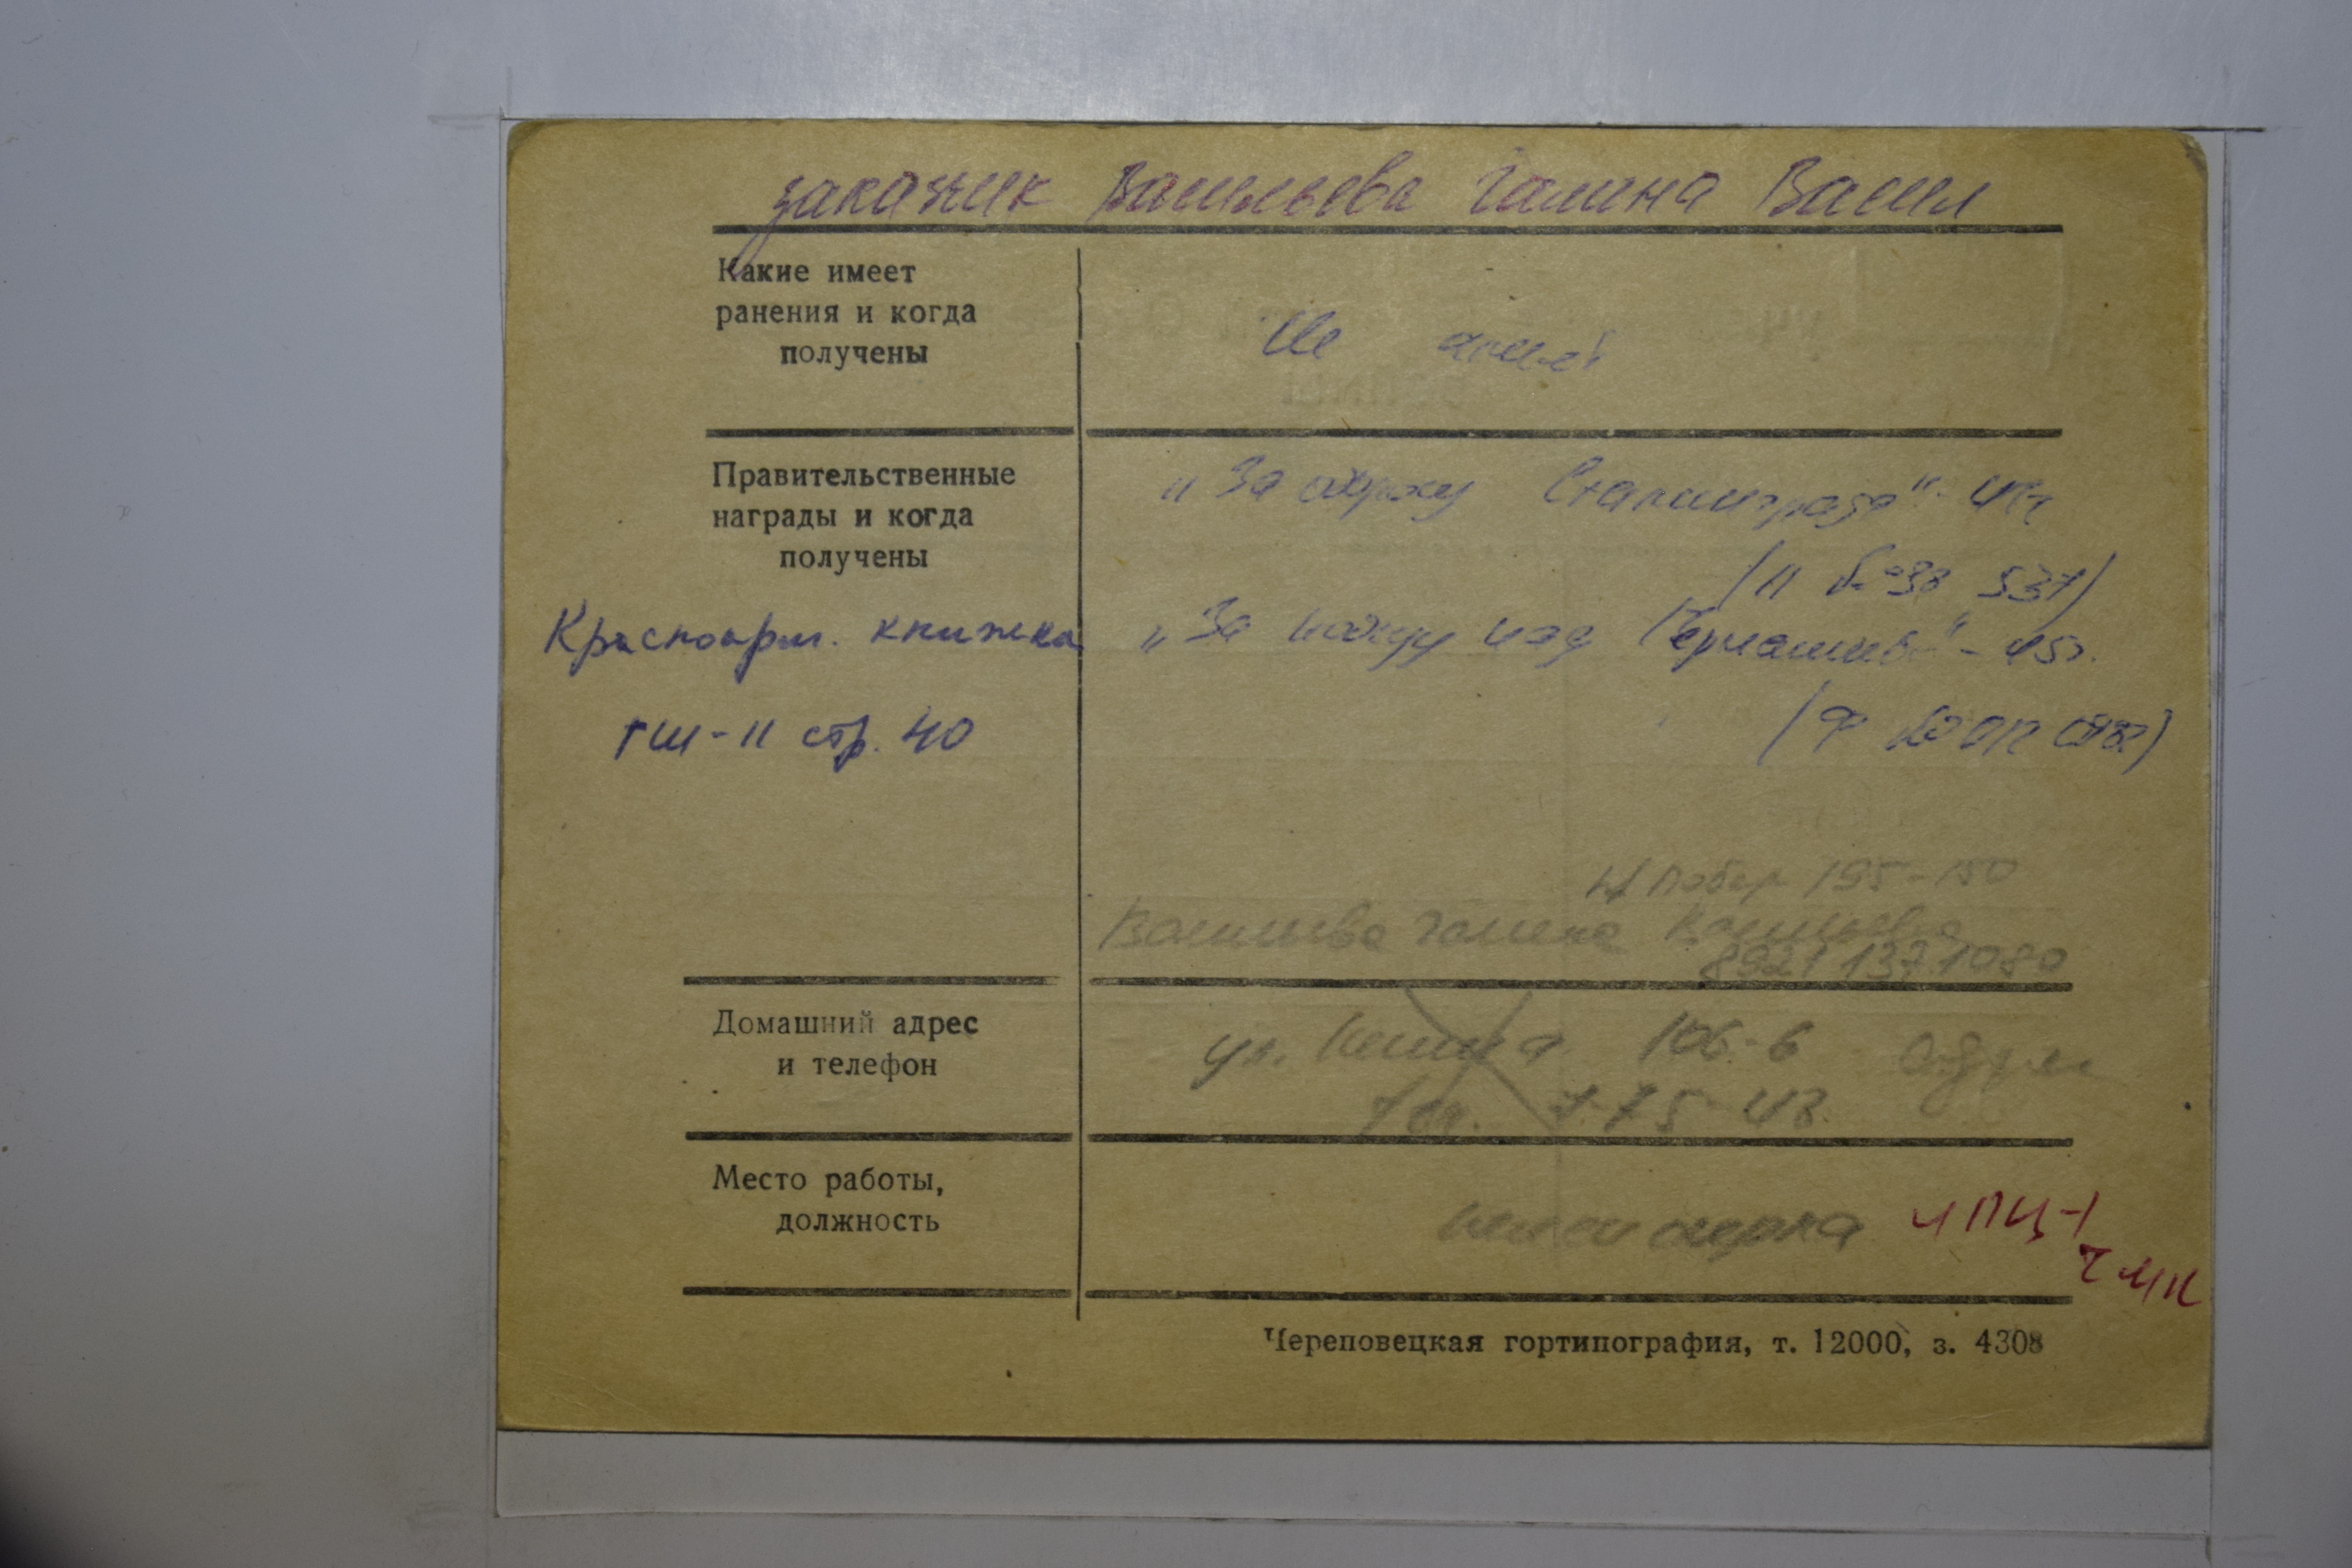 закажик Васильева Галина Васил
Какие имеет
ранения и когда
получены
Не имеет
Правительственные
награды и когда
получены
„За оборону Сталинграда“ - 44г
(П № 38 537)
Красноарм. книжка
„За победу над Германией“ - 45г.
ГШ-II стр. 40
(Ф № 012
Побед 195-150
Васильева Галина Васильевна
8921 137 1080
Домашний адрес
и телефон
ул. Ленина 106-6
тел. 7-75-43
Место работы,
должность
пенсионерка ЛПЦ-1
ЧМК
Череповецкая гортипография, т. 12000, з. 4308